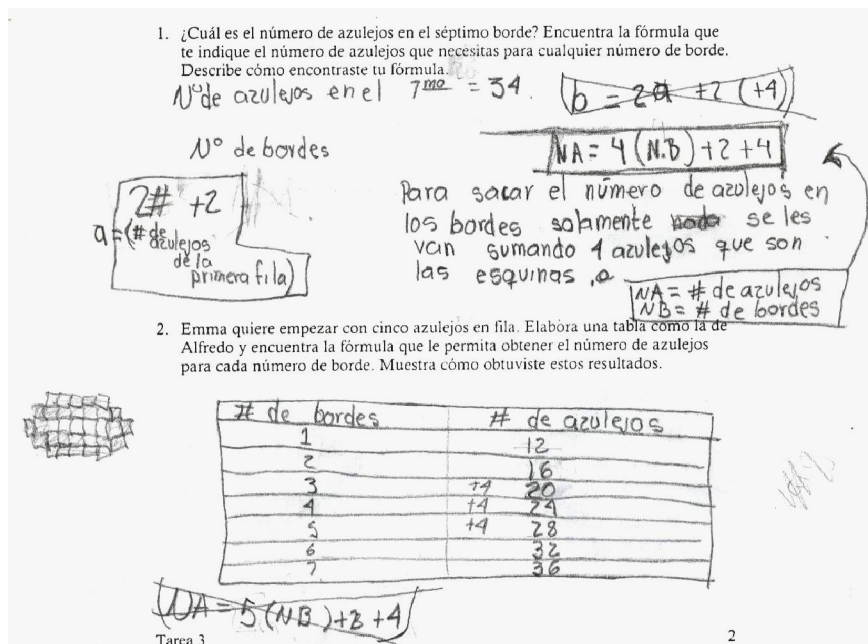 1. ¿Cuál es el número de azulejos en el séptimo borde? Encuentra la fórmula que
te indique el número de azulejos que necesitas para cualquier número de borde.
Describe cómo encontraste tu fórmula.
Nº de azulejos en el 7mo = 34.
b = 2a +2 (+4)
Nº de bordes
NA = 4 (N.B) +2 +4
2# +2
a = (# de azulejos
de la
primera fila)
Para sacar el número de azulejos en
los bordes solamente se les
van sumando 4 azulejos que son
las esquinas.
NA = # de azulejos
NB = # de bordes
2. Emma quiere empezar con cinco azulejos en fila. Elabora una tabla como la de
Alfredo y encuentra la fórmula que le permita obtener el número de azulejos
para cada número de borde. Muestra cómo obtuviste estos resultados.
# de bordes # de azulejos
1 12
2 16
3 +4 20
4 +4 24
5 +4 28
6 32
7 36
NA = 5 (NB) +3 +4
Tarea 3 2